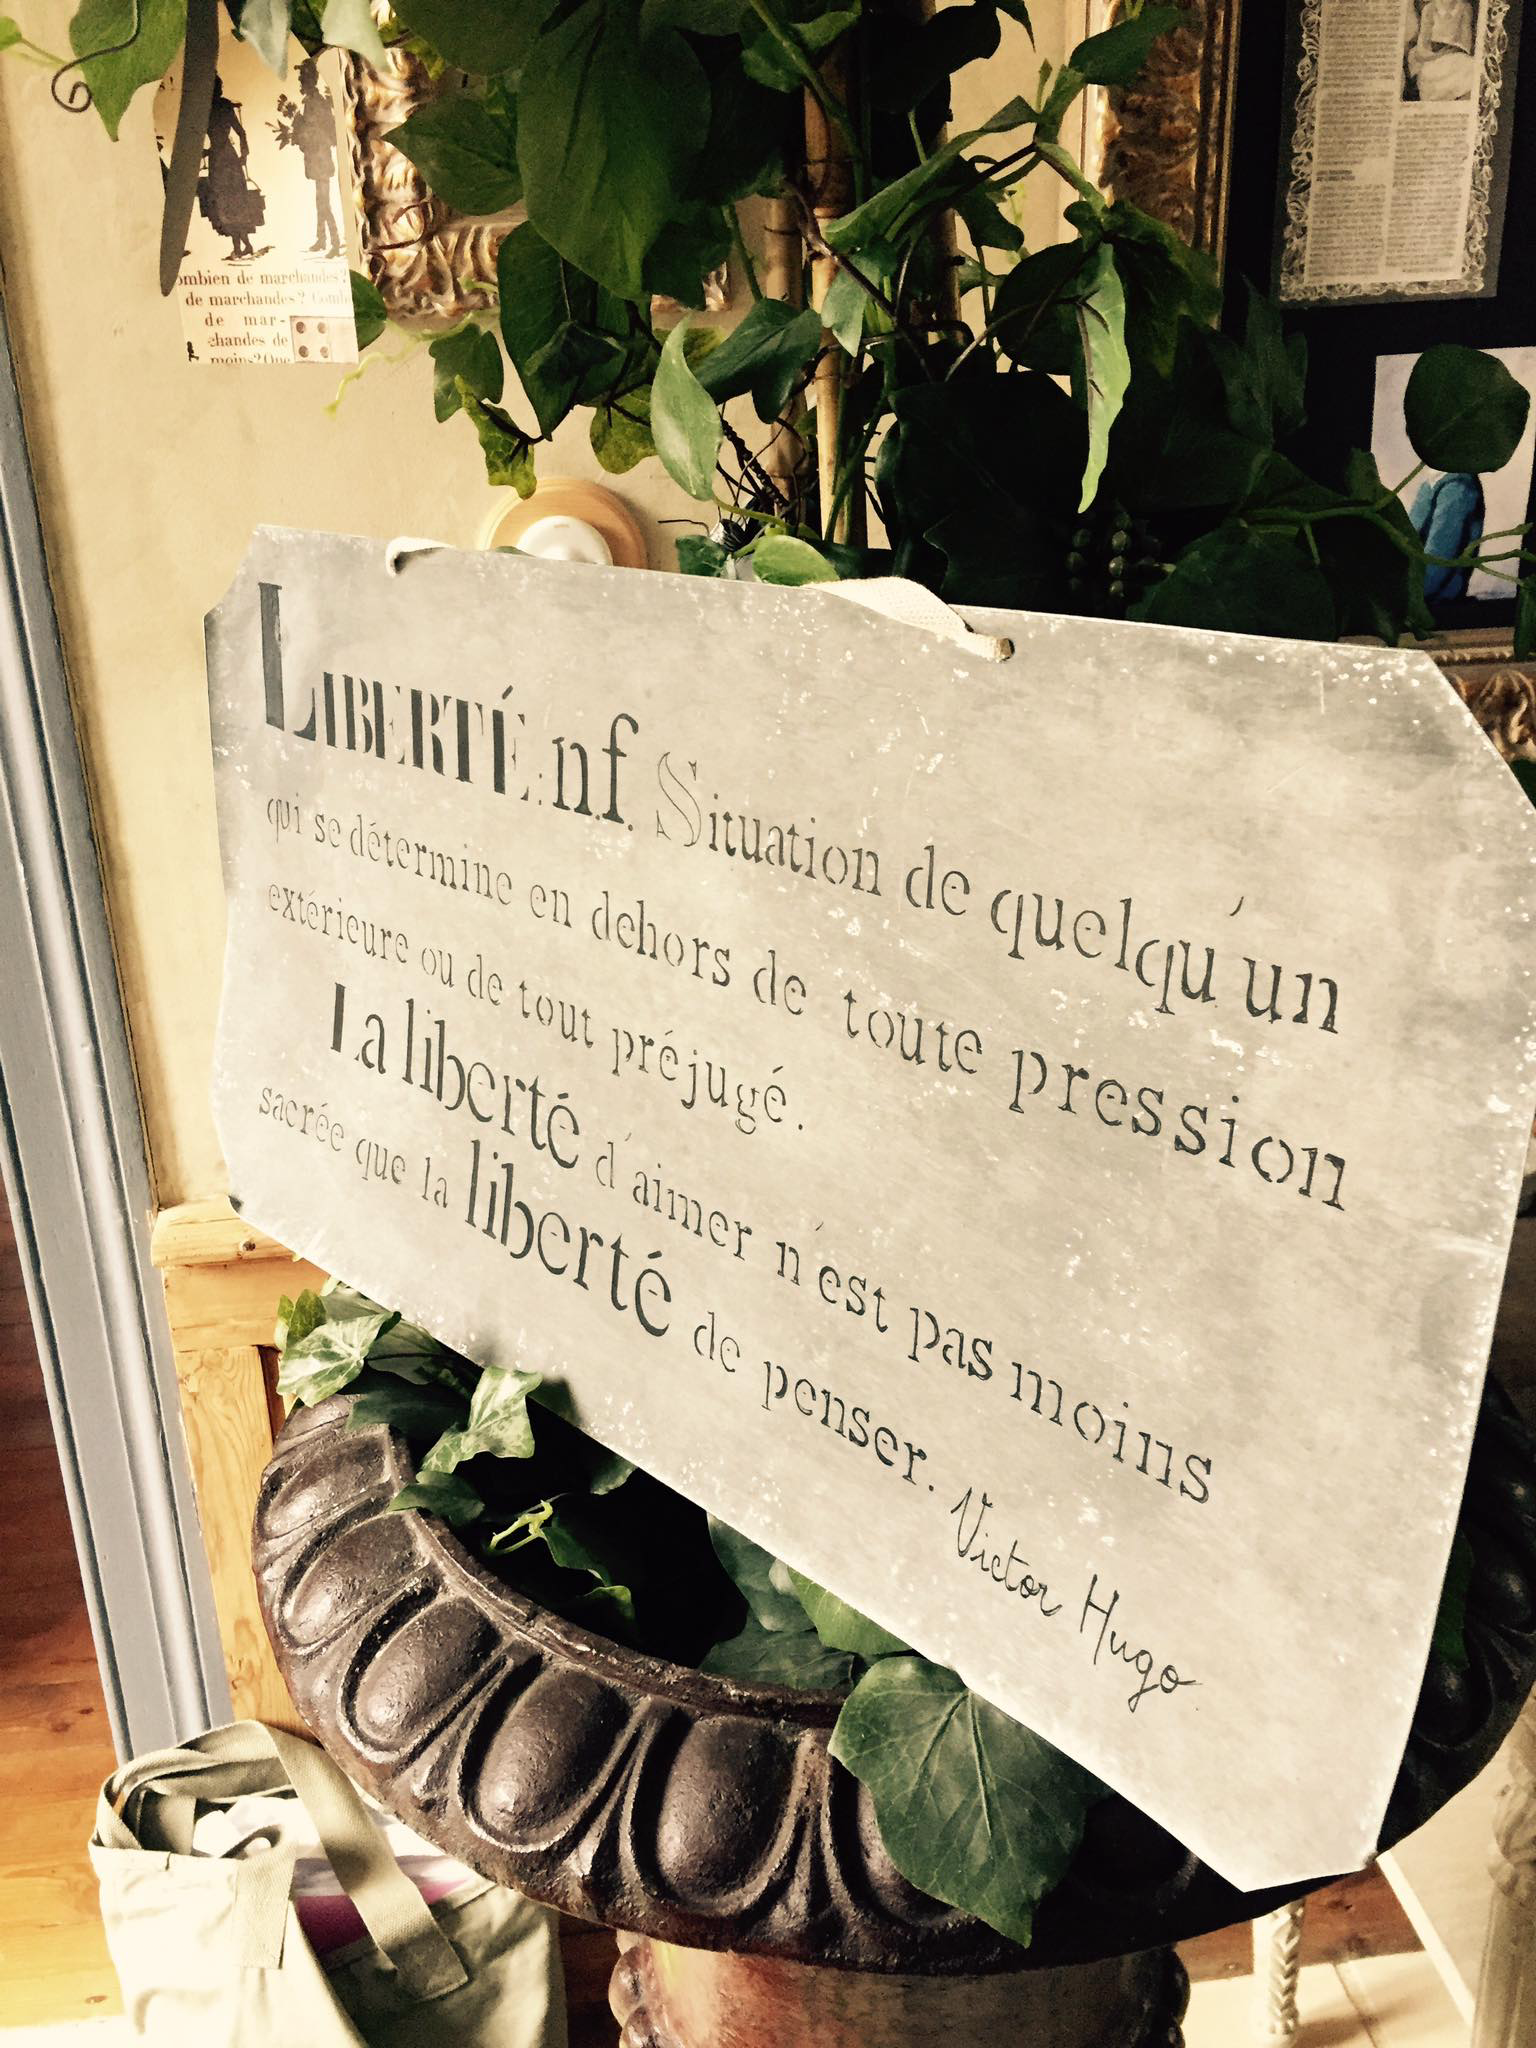 ombien de marchandes?
de marchandes? Comb
de mar-
chandes de
moins? Que
LIBERTÉ: n.f. Situation de quelqu'un
qui se détermine en dehors de toute pression
extérieure ou de tout préjugé.
La liberté d'aimer n'est pas moins
sacrée que la liberté de penser. Victor Hugo